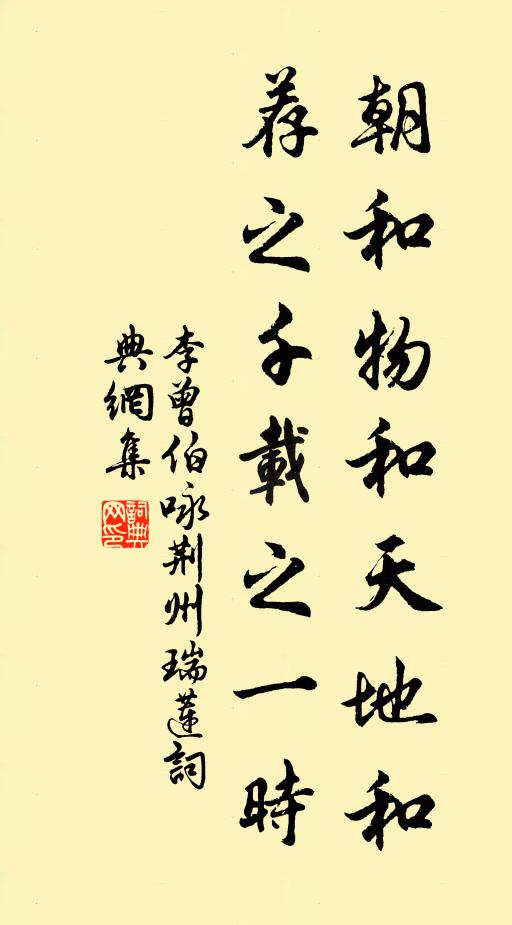 朝和物和天地和
荐之千載之一時
李曾伯咏荆州瑞蓮詞
典網集
詞典网印